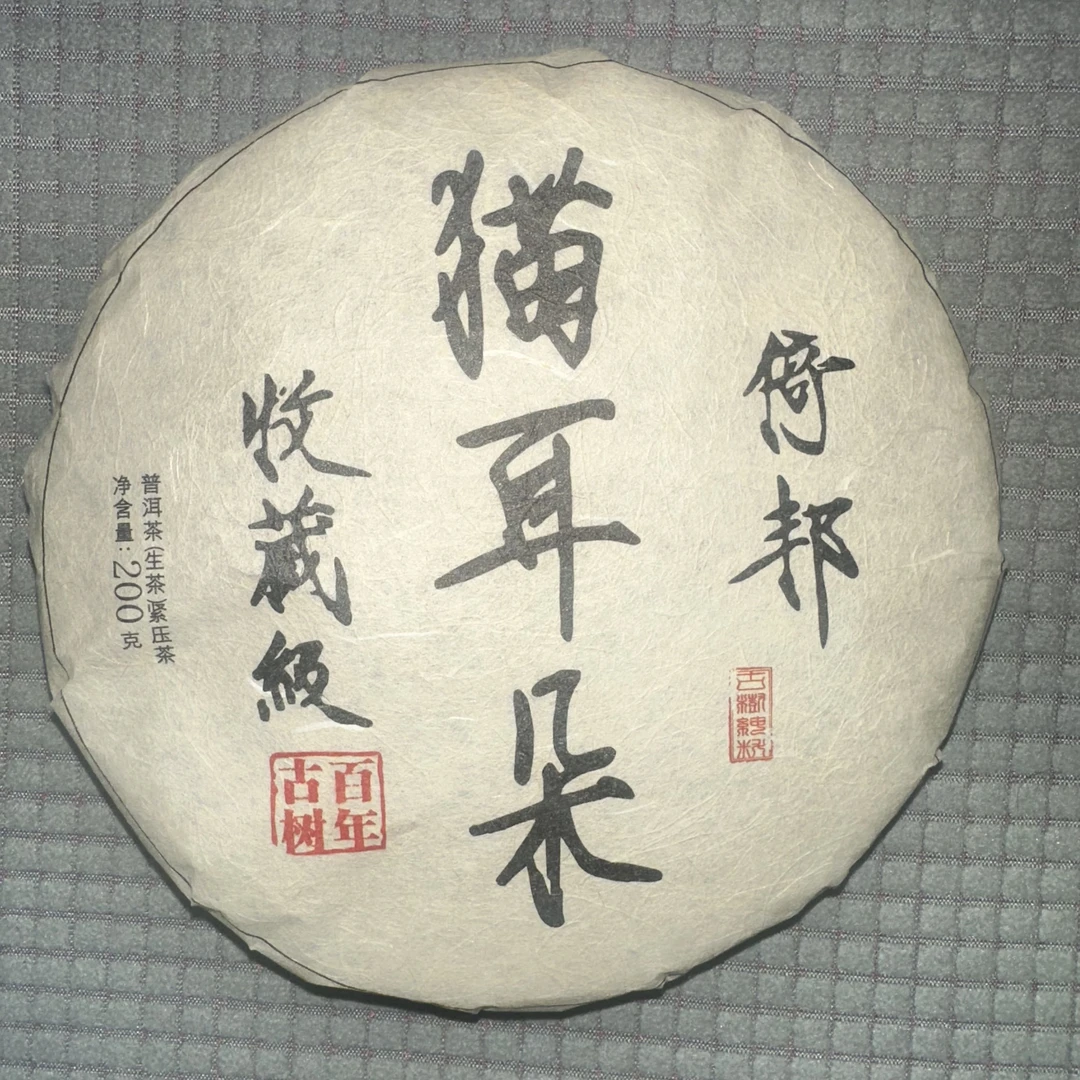 倚邦
古樹純料
猫耳朵
收藏級
百年
古树
普洱茶(生茶)紧压茶
净含量:200克